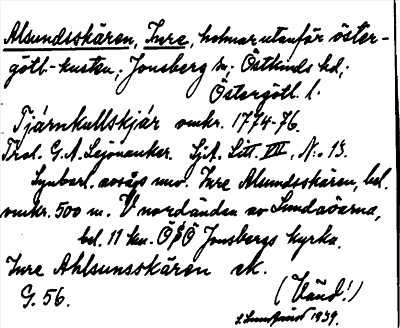 Alsundsskären, Inre, holmar utanför öster-
götl-kusten; Jonsberg sn; Östkinds hd;
Östergötl. l.
Tjärnkullskjär omkr. 1774-76.
Trol. G. A. Lejonanker. SjA. Litt VII, No 13.
Synbarl. avses nuv. Inre Alsundsskären, bel.
omkr. 500 m. V nordändan av Lundaöarna,
bel. 11 km. OSO Jonsbergs kyrka.
Inre Ahlsunsskären ek.
G. 56.
(Vänd!)
1939.